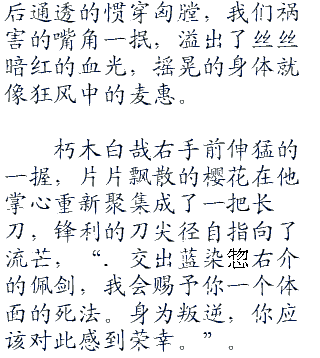 后通透的惯穿匈膛，我们祸
害的嘴角一抿，溢出了丝丝
暗红的血光，摇晃的身体就
像狂风中的麦惠。
朽木白哉右手前伸猛的
一握，片片飘散的樱花在他
掌心重新聚集成了一把长
刀，锋利的刀尖径自指向了
流芒，“．交出蓝染惣右介
的佩剑，我会赐予你一个体
面的死法。身为叛逆，你应
该对此感到荣幸。”。